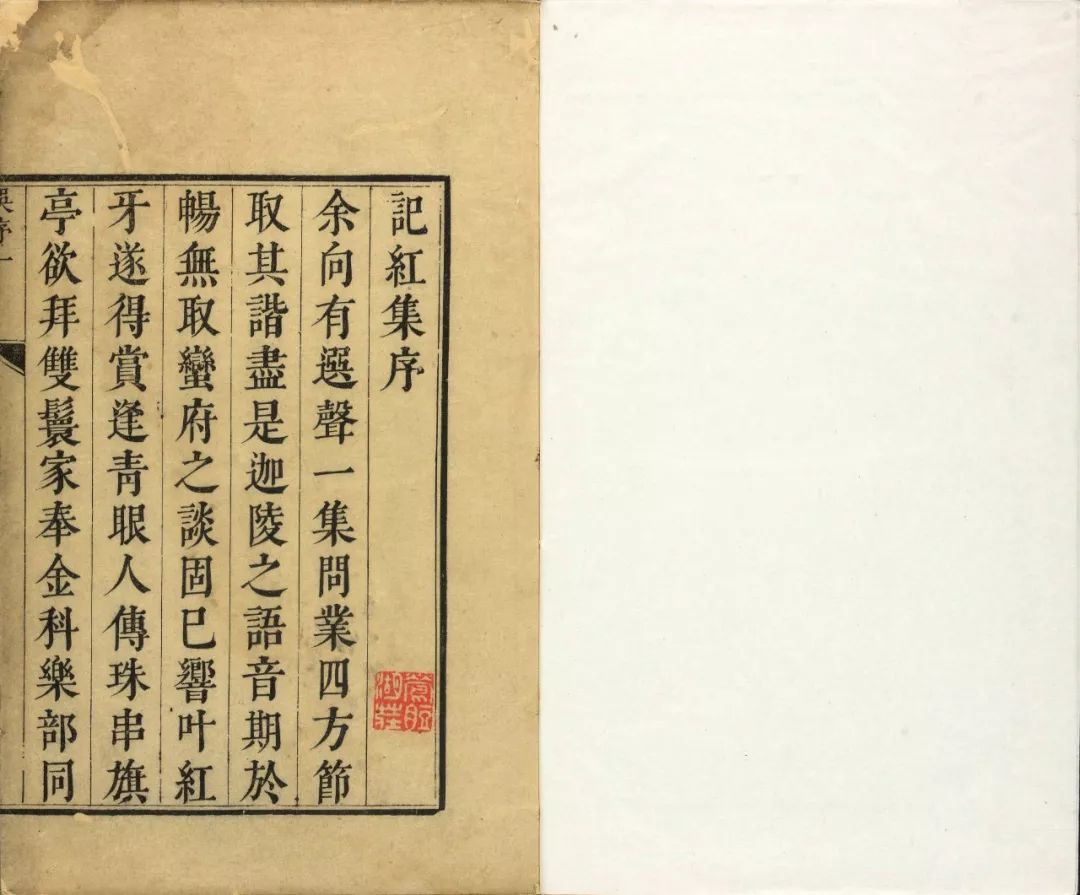 記紅集序
余向有選聲一集問業四方節
取其諧盡是迦陵之語音期於
暢無取蠻府之談固已響叶紅
牙遂得賞逢青眼人傳珠串旗
亭欲拜雙鬟家奉金科樂部同
吳序一
鶯脰
湖莊